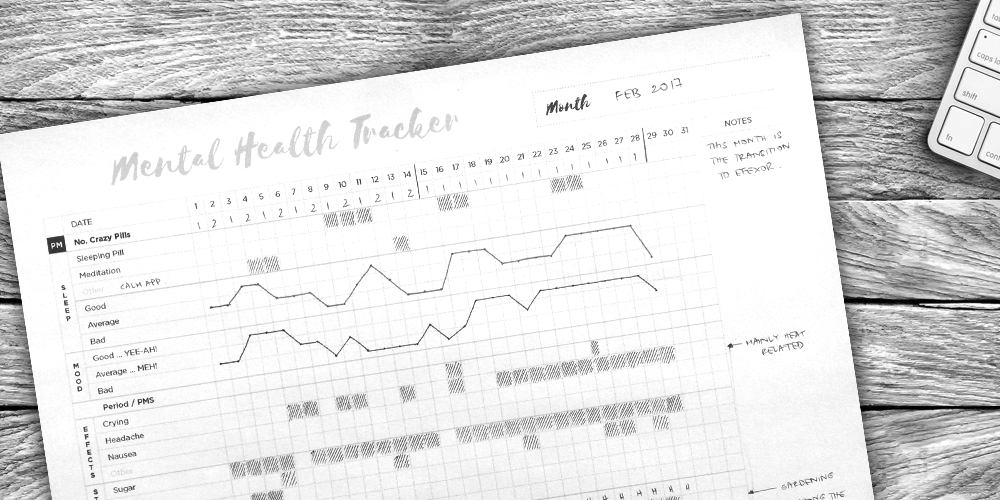 Mental Health Tracker
Month FEB 2017
DATE 1 2 3 4 5 6 7 8 9 10 11 12 13 14 15 16 17 18 19 20 21 22 23 24 25 26 27 28 29 30 31
NOTES
THIS MONTH IS
THE TRANSITION
TO EFEXOR.
PM
No. Crazy Pills 1 2 1 2 1 2 1 2 1 2 1 2 1 2 1 1 1 1 1 1 1 1 1 1 1 1 1 1
Sleeping Pill
Meditation
Other CALM APP
SLEEP
Good
Average
Bad
MOOD
Good ... YEE-AH!
Average ... MEH!
Bad
Period / PMS
EFFECTS
Crying
Headache
Nausea
Other
Sugar
MAINLY HEAT
RELATED
GARDENING
caps lo
shift
fn
con